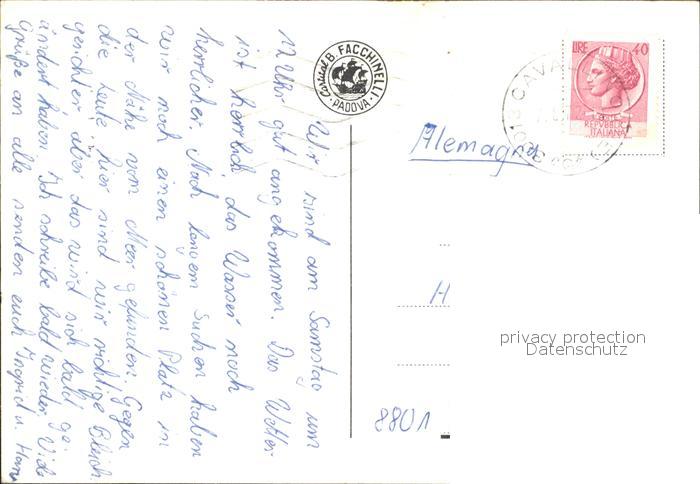 Wir sind am Samstag um
11 Uhr gut angekommen. Das Wetter
ist herrlich, das Wasser noch
herrlicher. Nach langem Suchen haben
wir noch einen schönen Platz in
der Nähe vom Meer gefunden. Gegen
die Leute hier sind wir richtige Bleich-
gesichter, aber das wird sich bald ge-
ändert haben. Ich schreibe bald wieder. Viele
Grüße an alle senden euch Ingrid u. Hans
Cartical B. FACCHINELLI
· PADOVA ·
30013 CAVAL
LIRE 40
REPVBBLICA
ITALIANA
Alemagna
H
8801
privacy protection
Datenschutz